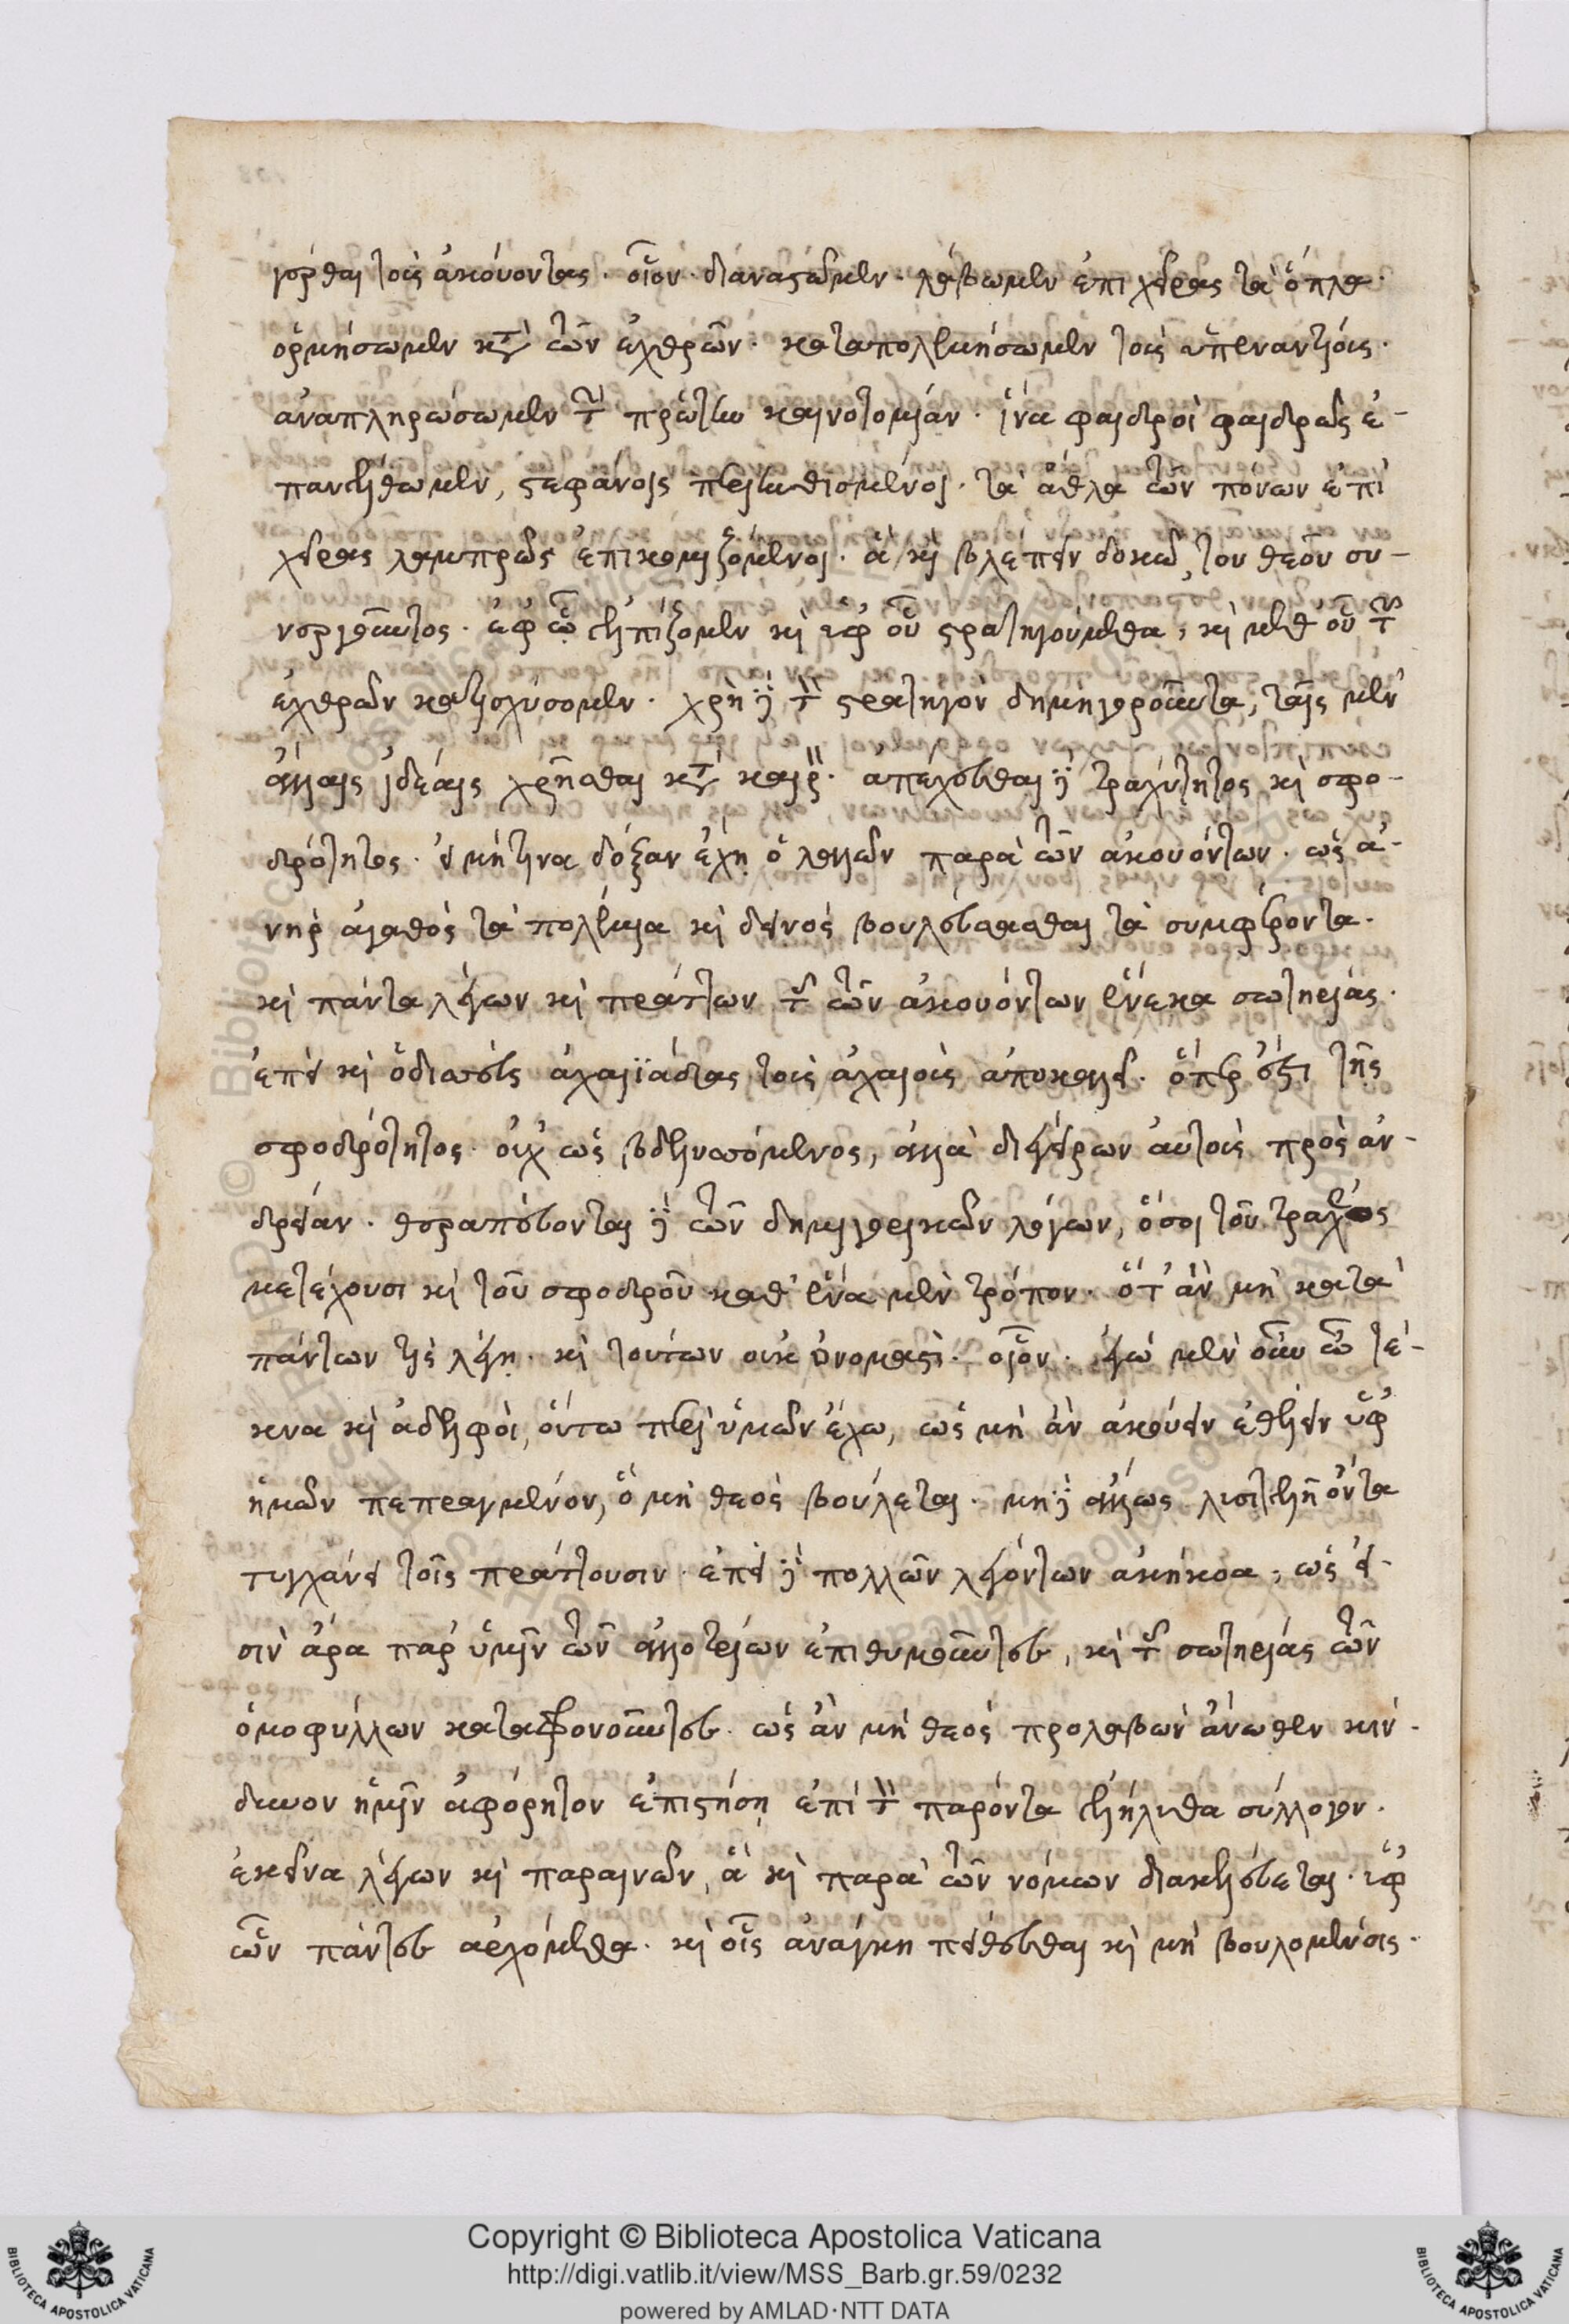 γεῖρθαι τοὺς ἀκούοντας· οἷον· διαναστῶμεν· λάβωμεν ἐπὶ χεῖρας τὰ ὅπλα·
ὁρμήσωμεν κατὰ τῶν ἐχθρῶν· καταπολεμήσωμεν τοὺς ὑπεναντίους·
ἀναπληρώσωμεν τὴν πρώτην καινοτομίαν· ἵνα φαιδροὶ φαιδρῶς ἐ-
πανέλθωμεν, στεφάνοις περιανθισμένοι· τὰ ἆθλα τῶν πόνων ἐπὶ
χεῖρας λαμπρῶς ἐπικομιζόμενοι· ἃ καὶ βλέπειν δοκῶ, τοῦ θεοῦ συ-
νεργοῦντος· ἐφ' ᾧ ἐλπίζομεν καὶ ὑφ' οὗ στρατηγούμεθα, καὶ μεθ' οὗ τῶν
ἐχθρῶν κατισχύσομεν· χρὴ δὲ τὸν στρατηγὸν δημηγοροῦντα, ταῖς μὲν
ἄλλαις ἰδέαις χρῆσθαι κατὰ καιρόν· ἀπέχεσθαι δὲ τραχύτητος καὶ σφο-
δρότητος· εἰ μή τινα δόξαν ἔχῃ ὁ λέγων παρὰ τῶν ἀκουόντων· ὡς ἀ-
νὴρ ἀγαθὸς τὰ πολέμια καὶ δεινὸς βουλεύσασθαι τὰ συμφέροντα·
καὶ πάντα λέγων καὶ πράττων τῆς τῶν ἀκουόντων ἕνεκα σωτηρίας·
ἐπεὶ καὶ ὀδυσσεὺς ἀχαιϊάδας τοὺς ἀχαιοὺς ἀποκαλεῖ· ὅπερ ἐστὶ τῆς
σφοδρότητος· οὐχ ὡς βδελυττόμενος, ἀλλὰ διεγείρων αὐτοὺς πρὸς ἀν-
δρείαν· θεραπεύονται δὲ τῶν δημηγορικῶν λόγων, ὅσοι τοῦ τραχέος
μετέχουσι καὶ τοῦ σφοδροῦ καθ' ἕνα μὲν τρόπον· ὅτ' ἂν μὴ κατὰ
πάντων τις λέγῃ· καὶ τούτων οὐκ ὀνομαστί· οἷον· ἐγὼ μὲν οὖν ὦ τέ-
κνα καὶ ἀδελφοὶ, οὕτω περὶ ὑμῶν ἔχω, ὡς μὴ ἂν ἀκούειν ἐθέλειν ὑφ'
ἡμῶν πεπραγμένον, ὃ μὴ θεὸς βούλεται· μὴ δὲ ἄλλως λυσιτελῆ ὄντα
τυγχάνει τοῖς πράττουσιν· ἐπεὶ δὲ πολλῶν λεγόντων ἀκήκοα, ὡς εἰ-
σὶν ἄρα παρ' ὑμῖν τῶν ἀλλοτρίων ἐπιθυμοῦντες, καὶ τῆς σωτηρίας τῶν
ὁμοφύλλων καταφρονοῦντες· ὡς ἂν μὴ θεὸς προλαβὼν ἄνωθεν κίν-
δυνον ἡμῖν ἀφόρητον ἐπιστήσῃ ἐπὶ τὸν παρόντα ἐλήλυθα σύλλογον·
ἐκεῖνα λέγων καὶ παραινῶν, ἃ καὶ παρὰ τῶν νόμων διακελεύεται· ὑφ'
ὧν πάντες ἀρχόμεθα· καὶ οἷς ἀνάγκη πείθεσθαι καὶ μὴ βουλομένοις·
Copyright © Biblioteca Apostolica Vaticana
http://digi.vatlib.it/view/MSS_Barb.gr.59/0232
powered by AMLAD·NTT DATA
BIBLIOTECA APOSTOLICA VATICANA
BIBLIOTECA APOSTOLICA VATICANA